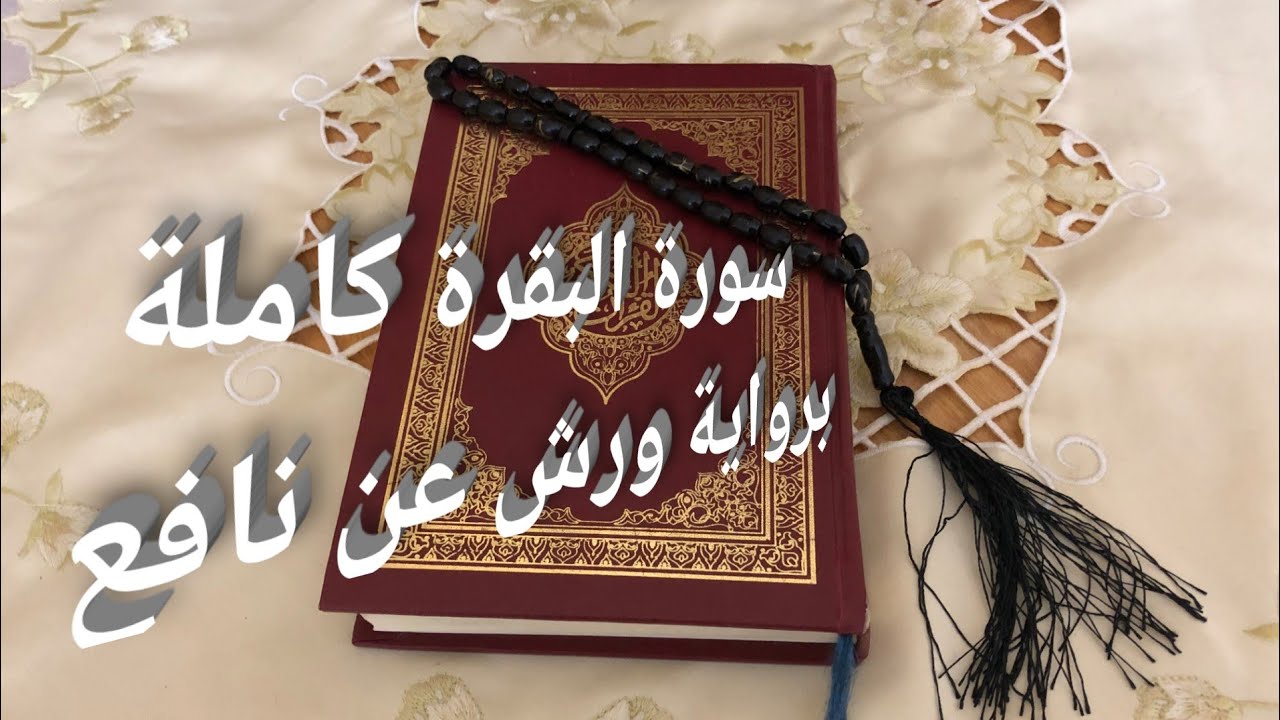 سورة البقرة كاملة
برواية ورش عن نافع